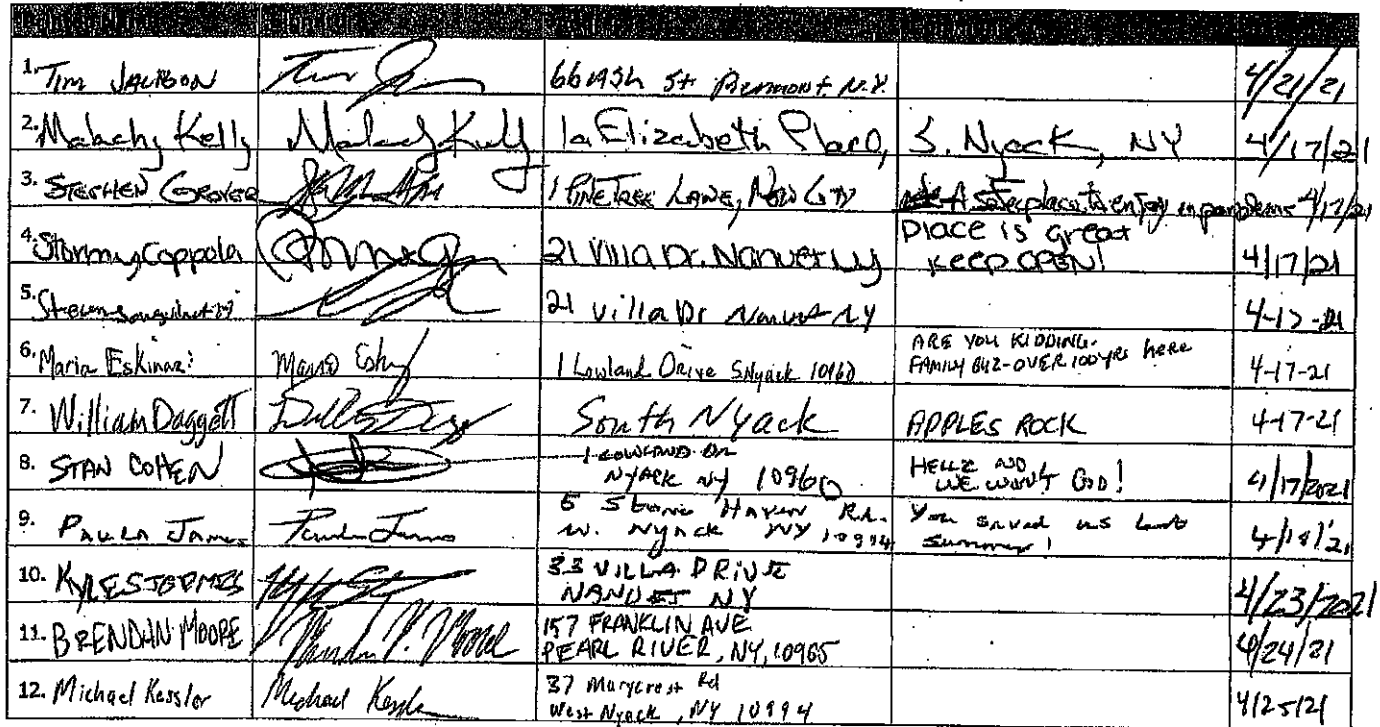 1. Tim 66 Ash St Piermont N.Y. 4/21/21
2. Malachy Kelly Malachy Kelly 1a Elizabeth Place, S. Nyack, NY 4/17/21
3. STEPHEN 1 PINE TREE LANE, NEW CITY A safe place to enjoy in 4/17/21
4. Stormy Coppola 21 Villa Dr. Nanuet NY Place is great
KEEP OPEN! 4/17/21
5. Steven 21 Villa Dr Nanuet NY 4-17-21
6. Maria Eskinazi 1 Lowland Drive S Nyack 10960 ARE YOU KIDDING.
FAMILY BUZ-OVER 100 YRS here 4-17-21
7. William Daggett South Nyack APPLES ROCK 4-17-21
8. STAN COHEN 1 LOWLAND DR
NYACK NY 10960 HELL NO
WE WON'T GO! 4/17/2021
9. PAULA James Paula James 5 Stone Haven Rd.
W. Nyack NY 10994 You saved us last
summer!
10. KYLE 33 VILLA DRIVE
NANUET NY 4/23/2021
11. BRENDAN MOORE 157 FRANKLIN AVE
PEARL RIVER, NY, 10965 4/24/21
12. Michael Kessler Michael Kessler 37 Marycrest Rd
West Nyack, NY 10994 4/25/21